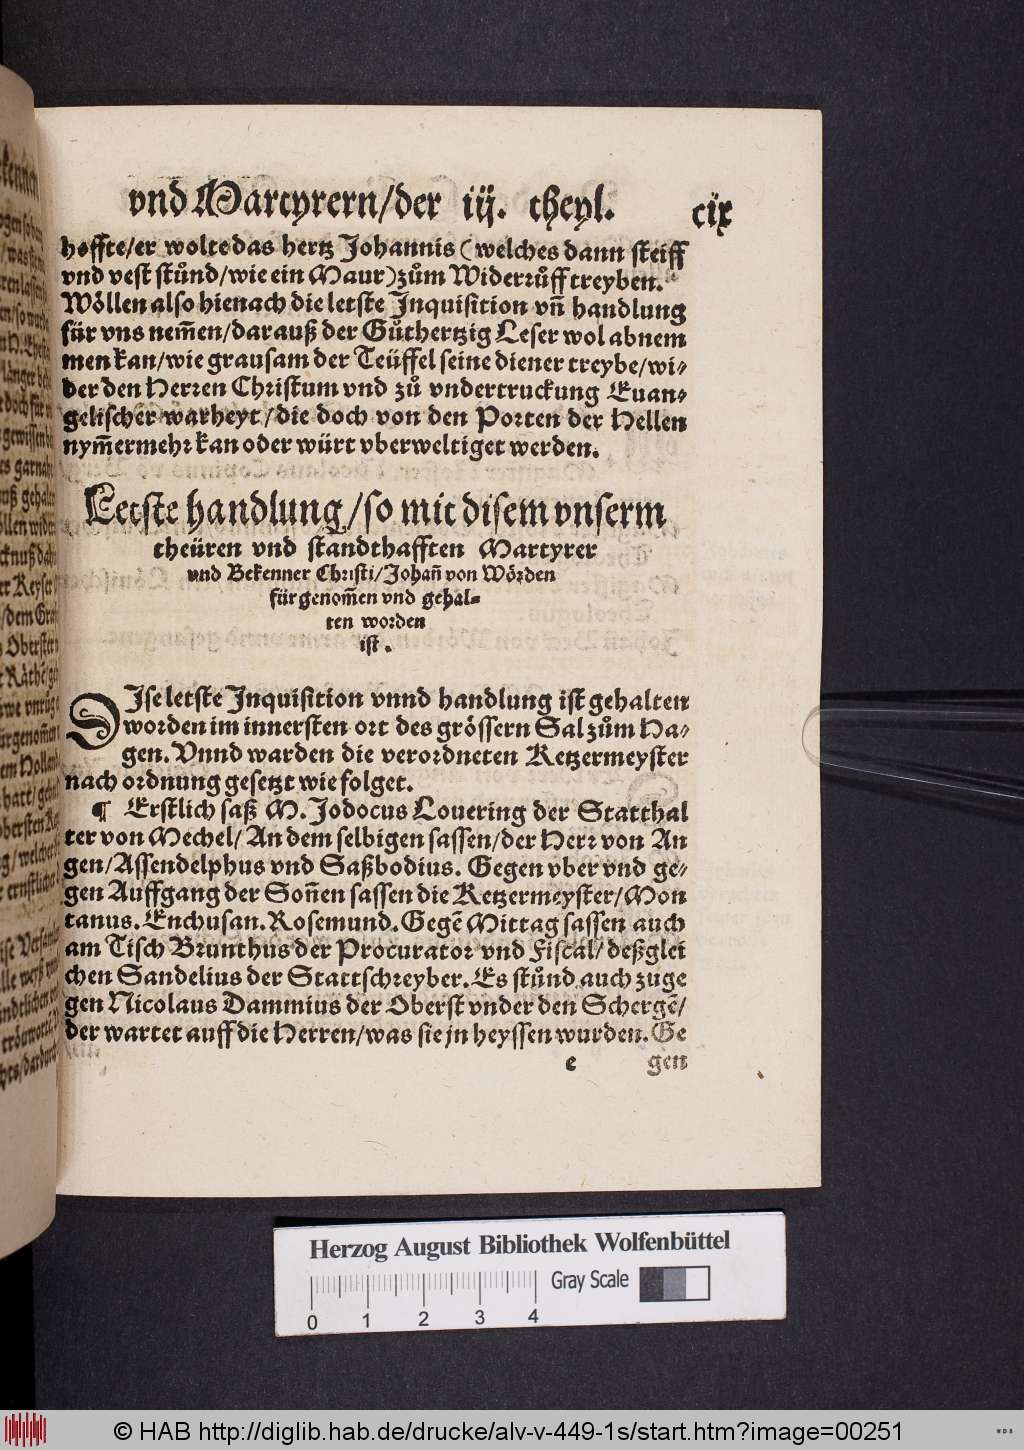 vnd Martyrern/der iij. theyl. cix
hoffte/er wolte das hertz Johannis (welches dann steiff
vnd vest stůnd/wie ein Maur) zům Widerrůff treyben.
Wöllen also hienach die letste Inquisition vñ handlung
für vns nem̃en/darauß der Gůthertzig Leser wol abnem
men kan/wie grausam der Teüffel seine diener treybe/wi-
der den Herren Christum vnd zů vndertruckung Euan-
gelischer warheyt/die doch von den Porten der Hellen
nym̃ermehr kan oder würt vberweltiget werden.
Letste handlung/so mit disem vnserm
theüren vnd standthafften Martyrer
vnd Bekenner Christi/Johañ von Wörden
für genom̃en vnd gehal-
ten worden
ist.
DIse letste Inquisition vnnd handlung ist gehalten
worden im innersten ort des grössern Sal zům Ha-
gen. Vnnd warden die verordneten Ketzermeyster
nach ordnung gesetzt wie folget.
¶ Erstlich saß M. Jodocus Louering der Statthal
ter von Mechel/ An dem selbigen sassen/der Herr von An
gen/Assendelphus vnd Saßbodius. Gegen vber vnd ge-
gen Auffgang der Soñen sassen die Ketzermeyster/Mon
tanus. Enchusan. Rosemund. Gegē Mittag sassen auch
am Tisch Brunthus der Procurator vnd Fiscal/ deßglei
chen Sandelius der Stattschreyber. Es stůnd auch zuge
gen Nicolaus Dammius der Oberst vnder den Schergē/
der wartet auff die Herren/was sie jn heyssen wurden. Ge
e gen
Herzog August Bibliothek Wolfenbüttel
Gray Scale
0 1 2 3 4
© HAB http://diglib.hab.de/drucke/alv-v-449-1s/start.htm?image=00251